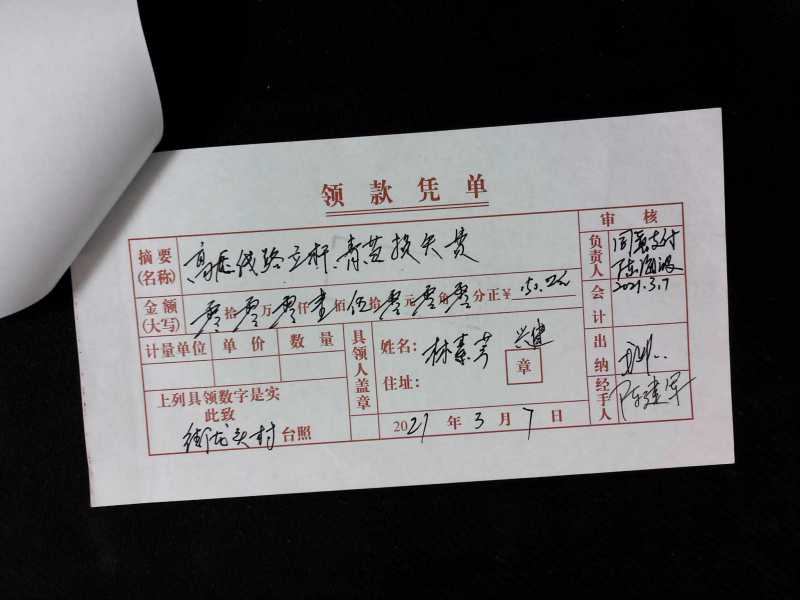 领款凭单
摘要(名称) 高压线路立杆青苗损失费
金额(大写) 零拾零万零仟壹佰伍拾零元零角零分正¥150.00
计量单位 单价 数量
上列具领数字是实
此致
头村台照
具领人盖章
姓名：林素芳
章
住址：
2021年3月7日
审核
负责人 同意支付
2021.3.7
会计
出纳
经手人 陈建军